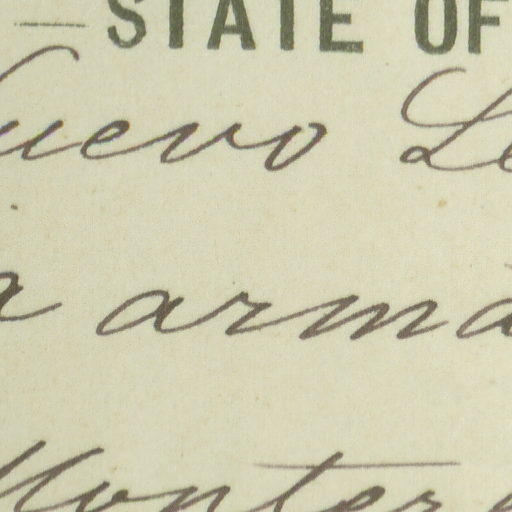 STATE OF
uevo Le
a arma
Monter